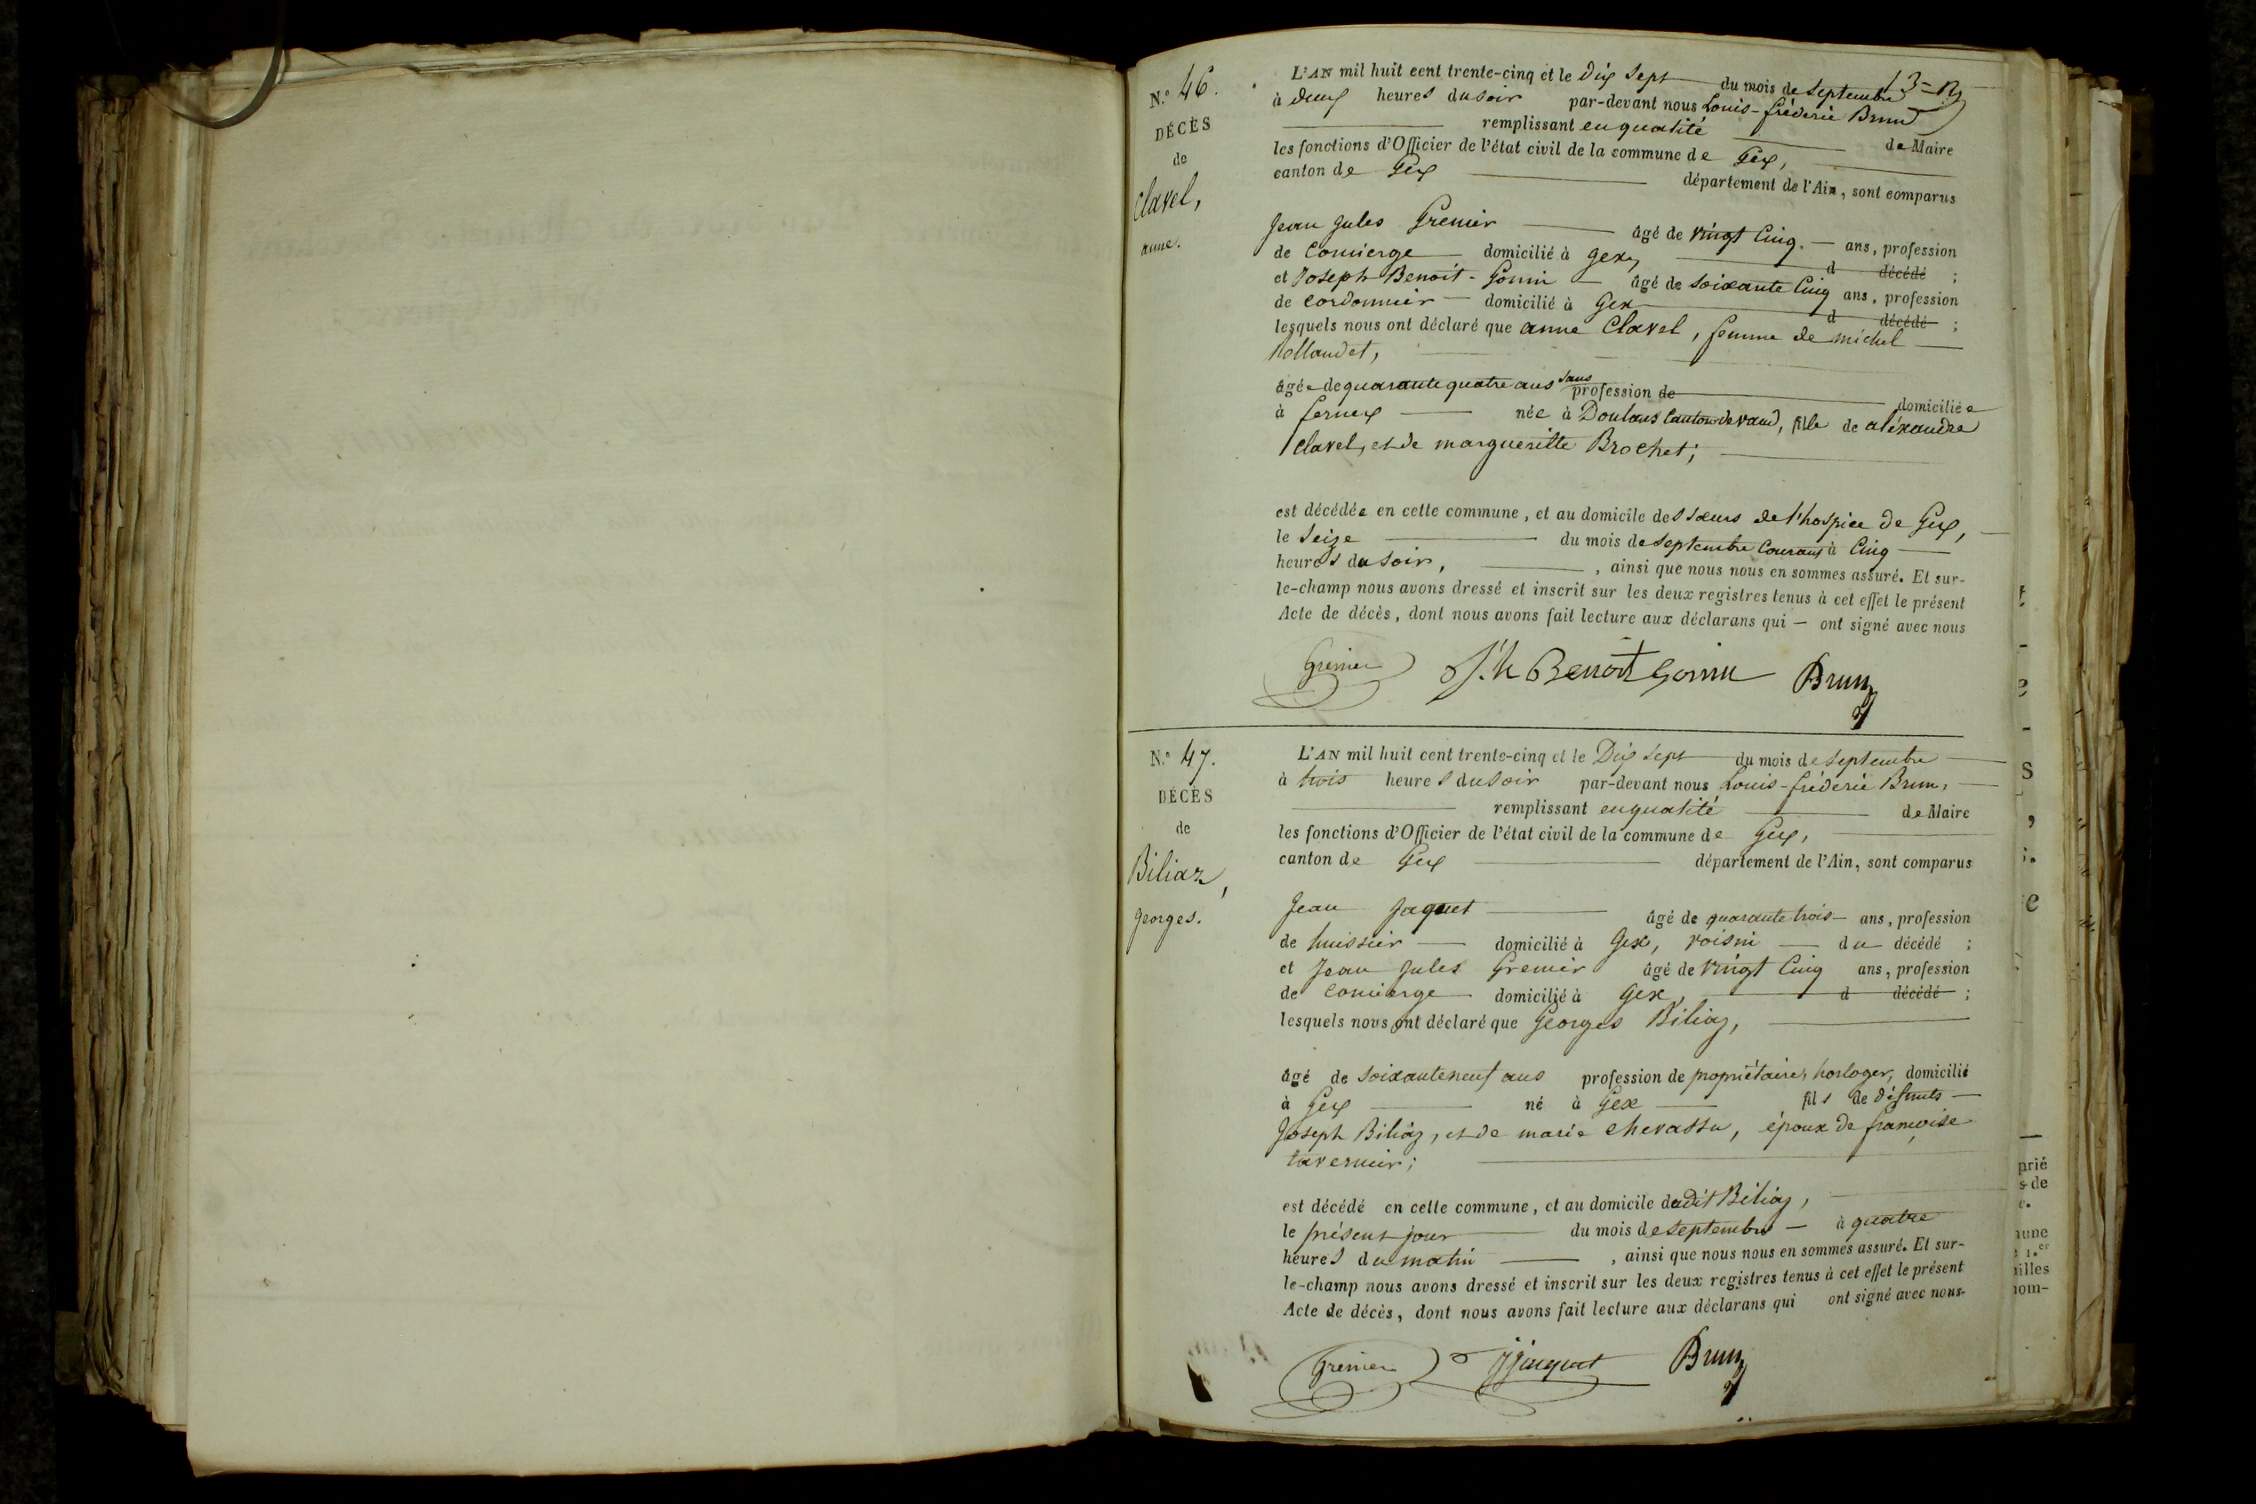 N.° 46.
DÉCÈS
de
Clavel,
anne.
L'AN mil huit cent trente-cinq et le Dix Sept du mois de Septembre
à deux heures du soir par-devant nous Louis-fréderic Brun
remplissant en qualité de Maire
les fonctions d'Officier de l'état civil de la commune de Gex,
canton de Gex département de l'Ain, sont comparus
Jean Jules Grenier âgé de vingt Cinq. ans, profession
de Concierge domicilié à Gex, d décédé ;
et Joseph Benoit-Gonin âgé de soixante Cinq ans, profession
de Cordonnier domicilié à Gex d décédé ;
lesquels nous ont déclaré que anne Clavel, femme de michel
âgée de quarante quatre ans sans profession de domiciliée
à fernex née à Doulans Canton de vaud, fille de aléxandre
Clavel, et de margueritte Brochet;
est décédée en cette commune, et au domicile des sœurs de l'hospice de Gex,
le Seize du mois de septembre Courant à Cinq
heures du soir, , ainsi que nous nous en sommes assuré. Et sur-
le-champ nous avons dressé et inscrit sur les deux registres tenus à cet effet le présent
Acte de décès, dont nous avons fait lecture aux déclarans qui — ont signé avec nous
Grenier J.h Benoit Gonin Brun
N.° 47.
DÉCÈS
de
Biliaz,
georges.
L'AN mil huit cent trente-cinq et le Dix Sept du mois de septembre
à trois heures du soir par-devant nous Louis-fréderic Brun,
remplissant en qualité de Maire
les fonctions d'Officier de l'état civil de la commune de Gex,
canton de Gex département de l'Ain, sont comparus
Jean Jaquet âgé de quarante trois ans, profession
de huissier domicilié à Gex, voisin du décédé ;
et Jean Jules Grenier âgé de vingt Cinq ans, profession
de Concierge domicilié à Gex d décédé ;
lesquels nous ont déclaré que Georges Biliaz,
âgé de soixante neuf ans profession de propriétaire, horloger, domicilié
à Gex né à Gex fils de défunts
Joseph Biliaz, et de marie Chevassu, époux de françoise
tavernier;
est décédé en cette commune, et au domicile dudit Biliaz,
le présent jour du mois de septembre à quatre
heures du matin , ainsi que nous nous en sommes assuré. Et sur-
le-champ nous avons dressé et inscrit sur les deux registres tenus à cet effet le présent
Acte de décès, dont nous avons fait lecture aux déclarans qui ont signé avec nous
Grenier JJaquet Brun